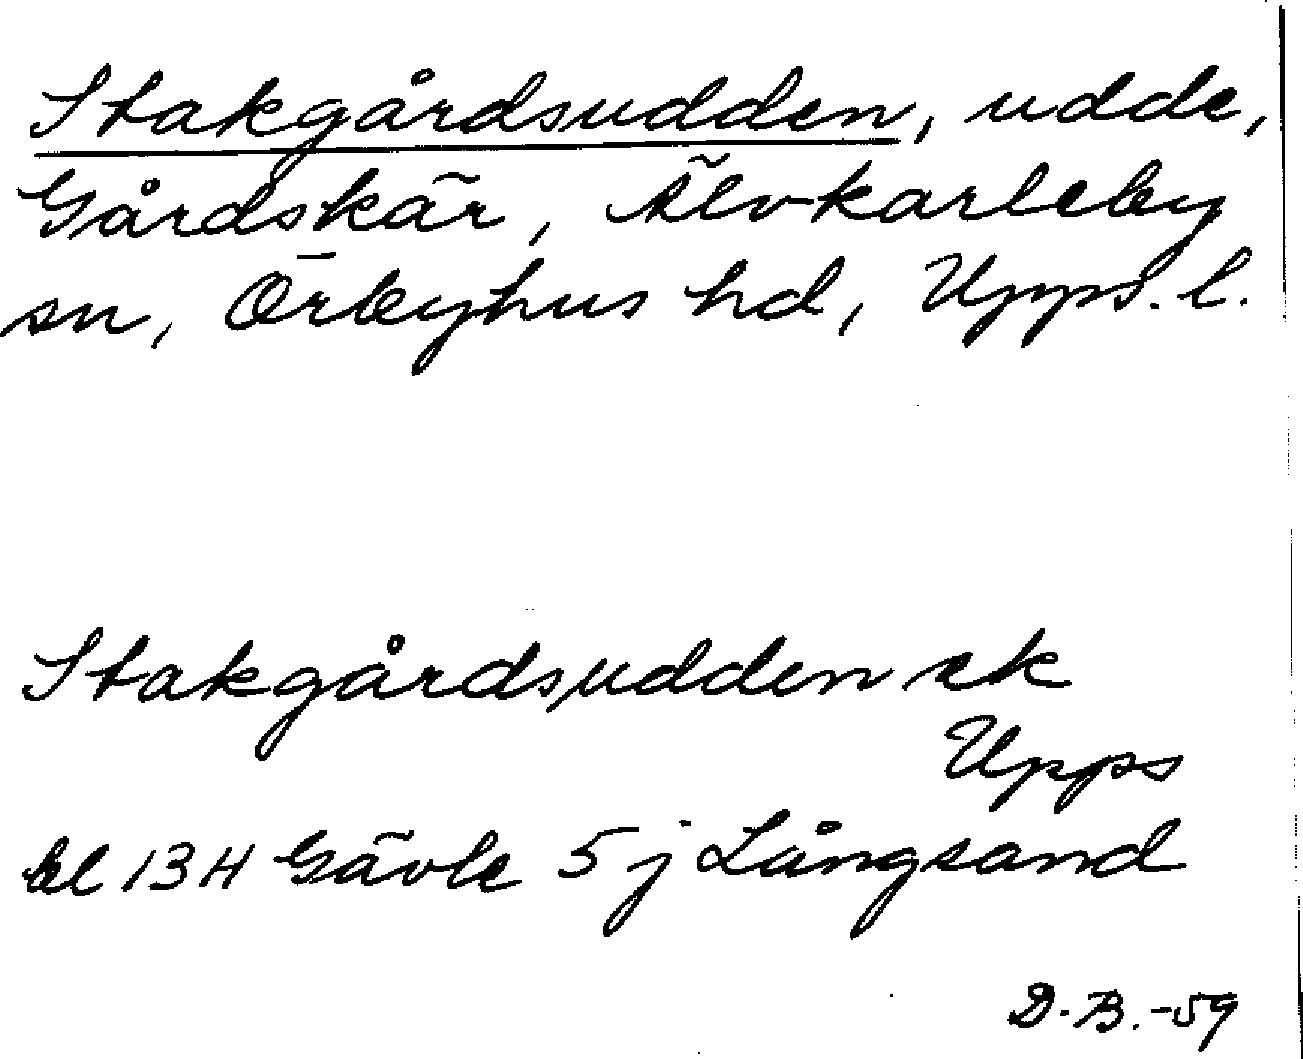 Stakgårdsudden, udde,
Gårdskär, Älvkarleby
sn, Örbyhus hd, Upps. l.
Stakgårdsudden ek
Upps
bl 13H Gävle 5j Långsand
D.B.-59